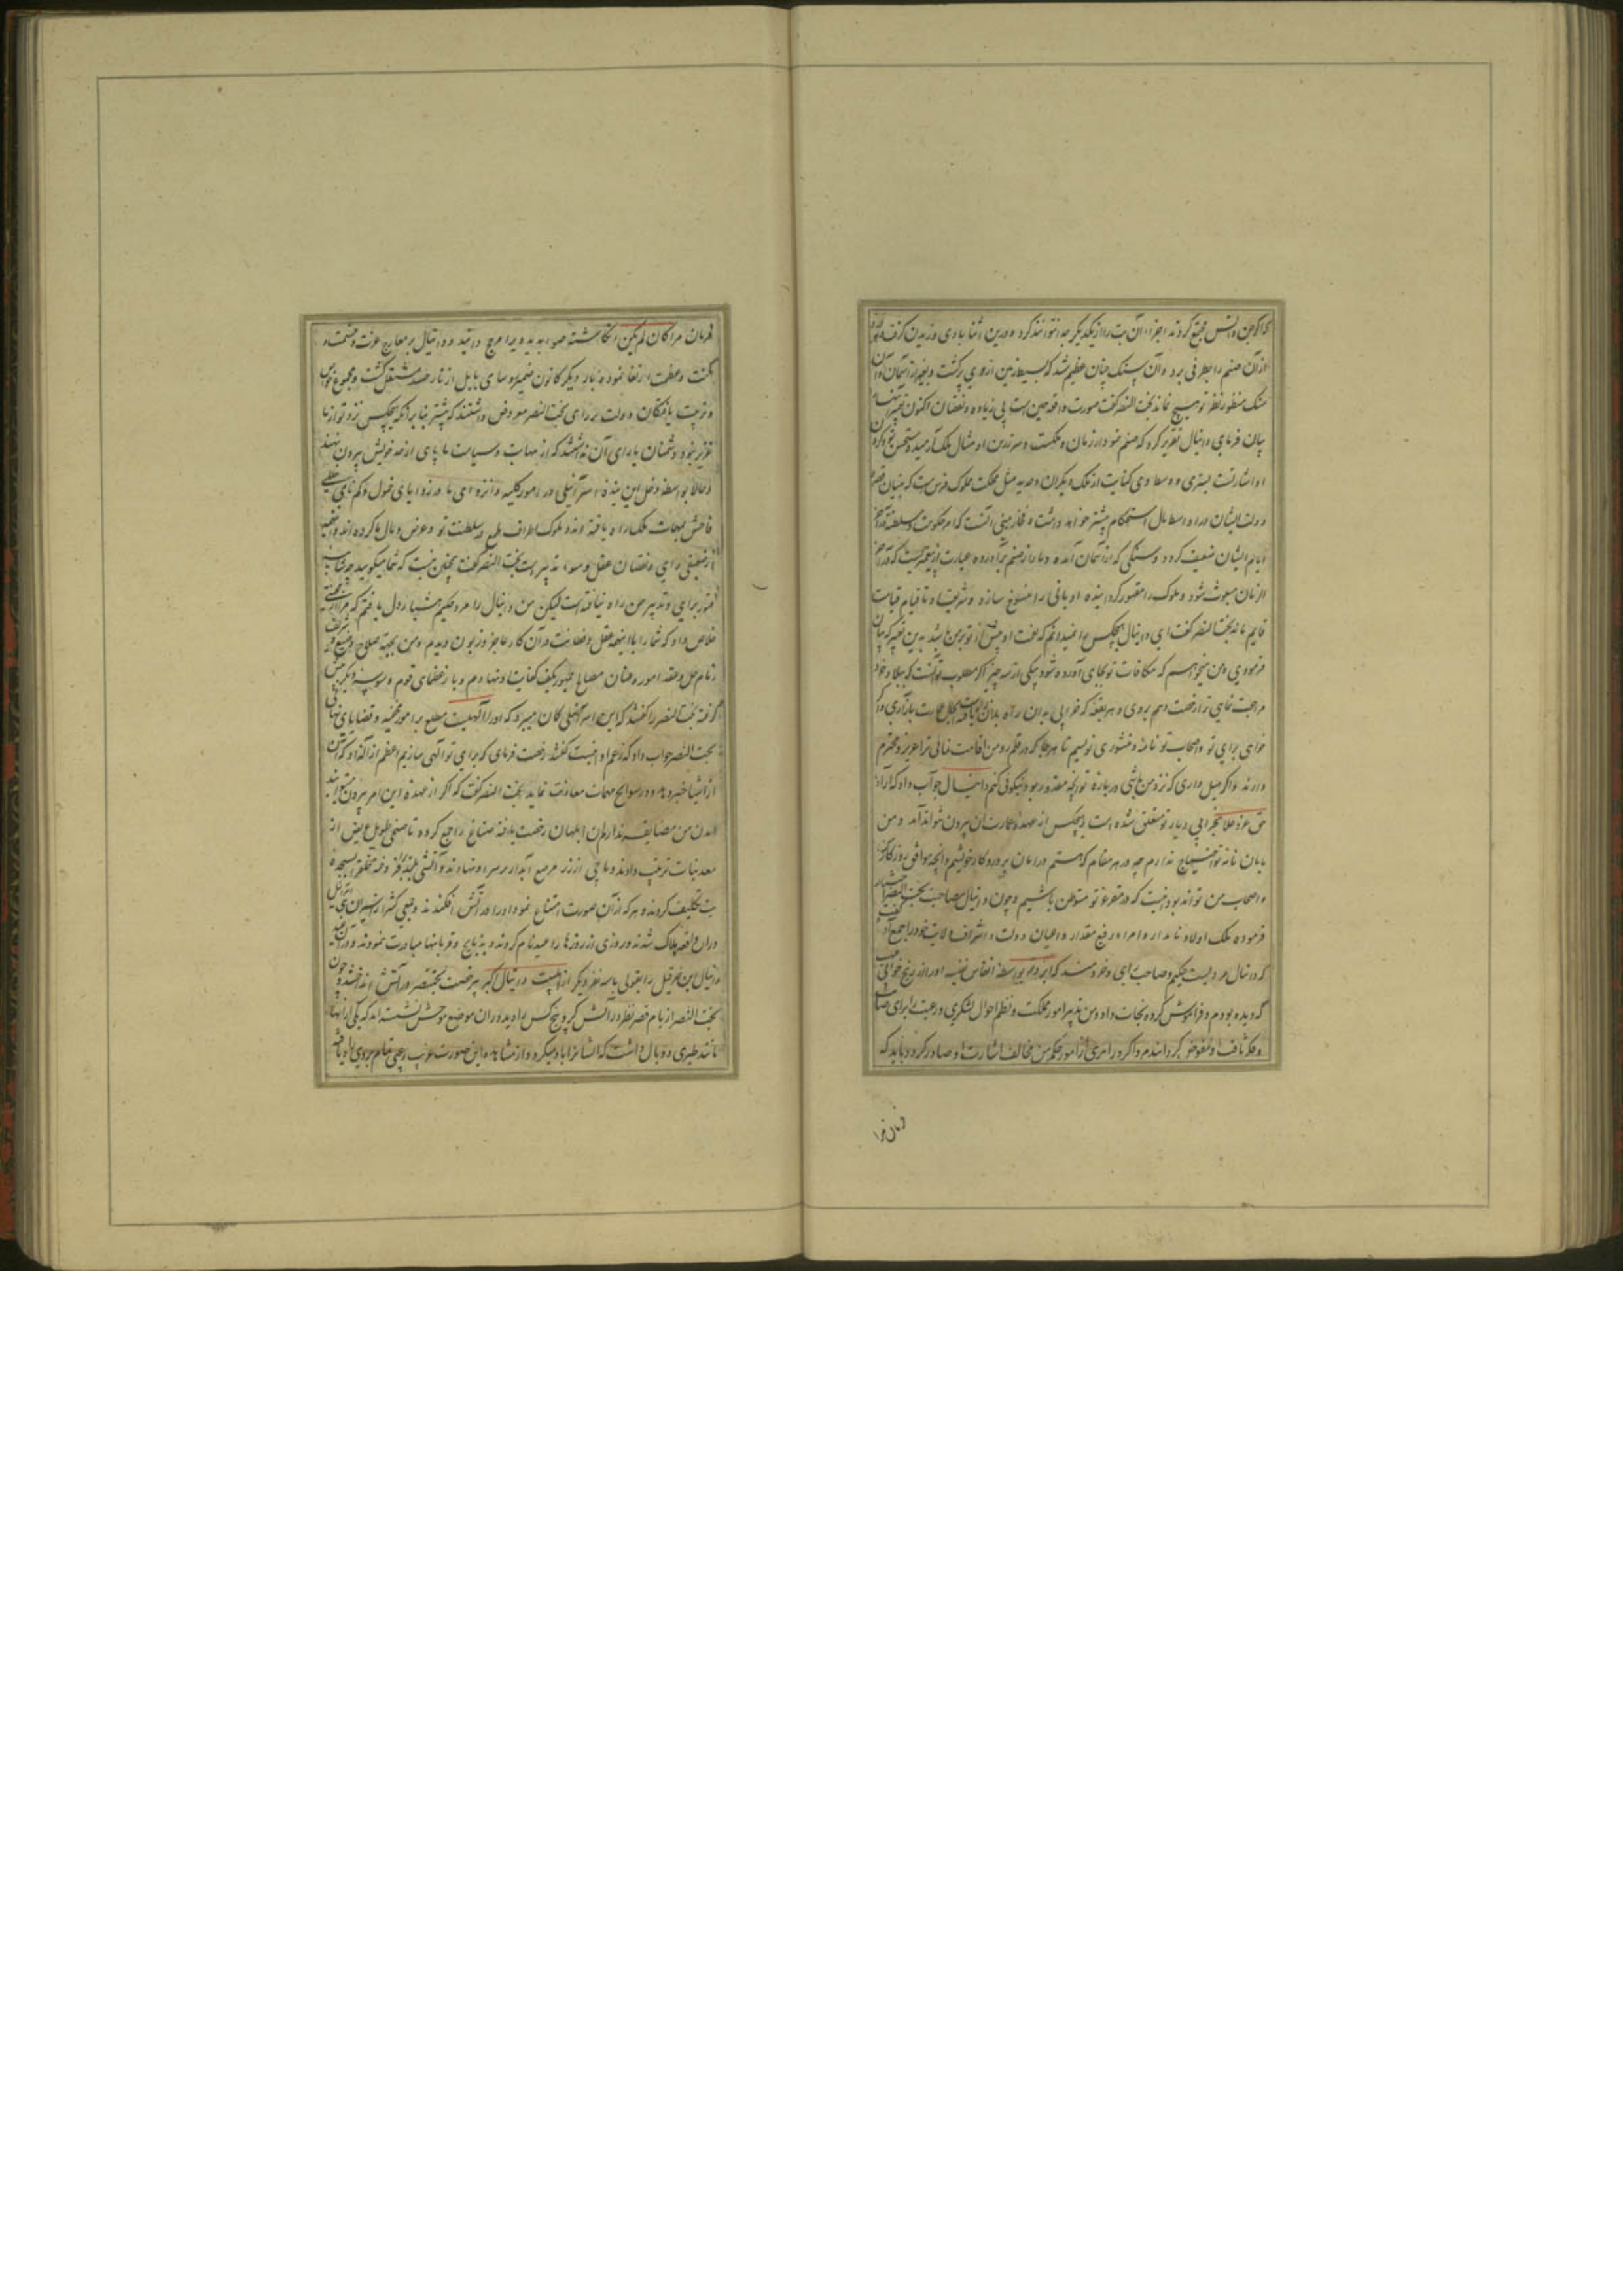 که اگر جن و انس جمع کردند اجزاء آن بت را از یکدیگر جدا نتوانند کرد و درین اثنا بادی وزیدن گرفت
از آن صنم را بطرفی برد و آن سنک چنان عظیم شد که بسیط زمین از وی پر گشت و بغیر از آسمان و آن
سنک منظور نظر تو هیچ نماند بخت النصر گفت صورت واقعه همین است بی زیاده و نقصان اکنون تعبیر آن
بیان فرمای دانیال تقریر کرد که صنم نمودار زمان و مملکت و سر زرین او مثال ملک
او اشارتست و وسط وی کنایت از ملک دیگران و مثل مملکت ملوک فرس است که بنیان
دولت ایشان در اواسط حال استحکام بیشتر خواهد داشت و آنست که امر حکومت و سلطنت در آخر
ایام ایشان ضعیف کردد و سنگی که از آسمان آمده و دمار از صنم برآورده عبارت از پیغمبریست که در آخر
الزمان مبعوث شود و ملوک را مقهور کردانیده ادیانی را منسوخ سازد و شریعت او تا قیام قیامت
قایم ماند بخت النصر گفت ای دانیال هیچکس را نمیدانم که نعمت او پیش از تو بر من باشد بدین تعبیر که بیان
فرمودی و من میخواهم که مکافات تو بجای آورده شود یکی از سه چیز اگر مطلوب تو آنست که ببلاد خود
مراجعت نمایی ترا رخصت دهم بروی و هر بقعه که خرابی بدان راه یافته است بحال عمارت باز آری و اگر
خواهی برای تو و اصحاب تو نامه و منشوری نویسم تا هرجا که در قلمرو من اقامت نمائی ترا عزیز و محترم
دارند و اگر میل داری که نزد من باشی در باره تو آنچه مقدور بود نیکوئی کنم دانیال جواب داد که اراده
حق عز و علا بخرابی دیار تو متعلق شده است و هیچکس از عهده عمارت آن بیرون نتواند آمد و من
بامان نامه تو احتیاج ندارم چه در هر مقام که هستم در امان پروردکار خویشم و آنچه موافق روزکار من
و اصحاب من تواند بود اینست که در مقر عز تو متوطن باشیم و چون دانیال مصاحبت بخت النصر اختیار
فرمود ملک اولاد نامدار و امراء رفیع مقدار و اعیان دولت و اشراف ولایت خود را جمع آورد گفت
که دانیال مردیست حکیم و صاحب رای و خردمند که ایزد بواسطه انفاس نفیسه او مرا از رنج خوابی
که دیده بودم و فراموش کرده نجات داد و من تدبیر امور مملکت و نظم احوال لشکری و رعیت را برای صایب
و فکر ثاقب او مفوض گردانیدم و اگر در امری از امور حکم من مخالف اشارت او صادر گردد باید که
فرمان مرا
فرمان مرا کان لم یکن انگاشته صوابدید ویرا مرجح دانید و دانیال بر معارج عزت و حشمت و
مکنت و عظمت ارتفاع نمود بار دیگر کانون ضمیر رؤسای بابل از نار حسد مشتعل گشت و مجموع خواص
و تربیت یافتگان دولت بر رای بخت النصر معروض داشتند که پیشتر بنا بر آنکه هیچکس نزد تو از ما
عزیزتر نبود دشمنان یارای آن نداشتند که از مهابت و سیاست ما پای از حد خویش بیرون نهند
و حالا بواسطه دخل این بنده اسرائیلی در امور کلیه و انزوای ما در زوایای خمول و کم نامی خللی
فاحش بمهمات ملک راه یافته و ملوک اطراف طمع در سلطنت تو و عرض و مال ما کرده اند و این همه
از ضعیفی رای و نقصان عقل و سوء تدبیر است بخت النصر گفت چنین نیست که شما میگویید چه
فتور برای و تدبیر من راه نیافته است لیکن من دانیال را مرد حکیم هشیار دل یافتم که مرا از محنتی
خلاص داد که شما را با اینهمه عقل و فطانت در آن کار عاجز و زبون دیدم و من بجهت صلاح
زمام حل و عقد امور و عنان مصالح جمهور بکف کفایت او نهادم و بار عظمای قوم
گرفته بخت النصر را گفتند که این اسرائیلی کان میبرد که او را آلهیست مطلع بر امور مخفیه و قضایای نهانی
بخت النصر جواب داد که زعم او اینست گفتند رخصت فرمای که برای تو آلهی سازیم اعظم از آله او که
از اشیا خبر دهد و در سوانح مهمات معاونت نماید بخت النصر گفت که اگر از عهده این امر بیرون توانید
آمدن من مضایقه ندارم آن ابلهان رخصت یافته صناع را جمع کرده تا صنمی طویل عریض از
معدنیات ترتیب دادند و تاجی از زر مرصع آبدار بر سر او نهادند و آتشی بلند افروخته خلق را بسجده
بت تکلیف کردند و هر که از آن صورت امتناع نمود او را در آتش افکندند و جمعی کثیر از اسیران بنی اسرائیل
در آن واقعه هلاک شدند و روزی از روزها را عید نام کردند و بذبایح و قربانیها مبادرت نمودند و در آن عید
دانیال ابن حزقیل را بقولی با سه نفر دیگر از اهلبیت دانیال اکبر بی رخصت بختنصر در آتش انداختند و چون
بخت النصر از بام قصر نظر در آتش کرد پنج کس را دید در آن موضع موحش نشسته اند که یکی از آنها
مانند طیری دو بال داشت که ایشانرا باد میکرد و از مشاهده این صورت غریب رعبی تمام بر وی راه یافته